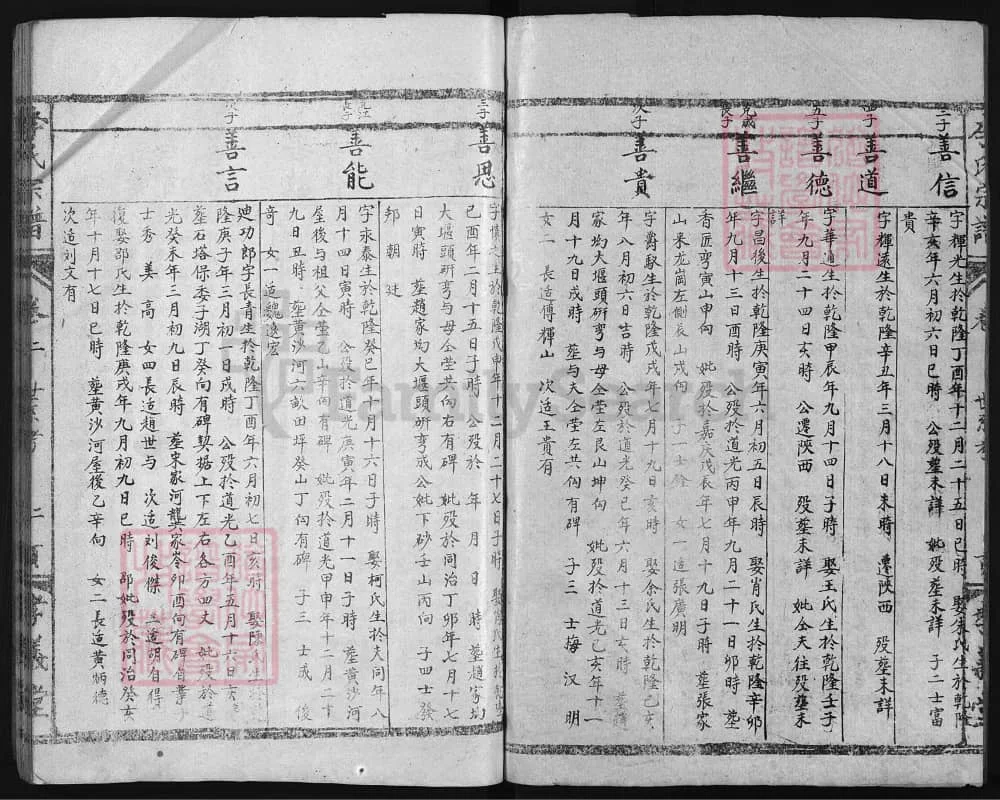 三子 善信
字輝光生於乾隆丁酉年十二月二十五日巳時 娶朱氏生於乾隆
辛亥年六月初六日巳時 公歿塟未詳 妣歿塟未詳 子二士富
貴
四子 善道
字輝遠生於乾隆辛丑年三月十八日未時 遷陝西 歿塟未詳
五子 善德
字華通生於乾隆甲辰年九月十四日子時 娶王氏生於乾隆壬子
年九月二十四日亥時 公遷陝西 歿塟未詳 妣仝夫往歿塟未
詳
善繼
字昌後生於乾隆庚寅年六月初五日辰時 娶肖氏生於乾隆辛卯
年九月十三日酉時 公歿於道光丙申年九月二十一日卯時 塟
香匠弯寅山申向 妣歿於嘉庆戊辰年七月十九日子時 塟張家
山來龙崗左側辰山戌向 子一士銓 女一適張廣明
次子 善貴
字爵馭生於乾隆戊戌年七月十九日亥時 娶余氏生於乾隆己亥
年八月初六日吉時 公歿於道光癸巳年六月十三日亥時 塟
家坳大堰頭研弯与母仝塋左艮山坤向 妣歿於道光乙亥年十一
月十九日戌時 塟与夫仝塋左共向有碑 子三 士梅 汉 明
女二 長适傅輝山 次适王貴有
三子 善恩
己酉年二月十五日子時 公歿於 年 月 日 時 塟趙家坳
大堰頭研弯与母仝塋共向右有碑 妣歿於同治丁卯年七月十七
日寅時 塟趙家坳大堰頭研弯戍公妣下砂壬山丙向 子四士發
邦 朝 廷
善能
字永泰生於乾隆癸巳年十月十六日子時 娶柯氏生於夫同年八
月十四日寅時 公歿於道光庚寅年二月十一日子時 塟黄沙河
屋後与祖父仝塋乙山辛向有碑 妣歿於道光甲申年十二月二十
九日丑時 塟黄沙河六畝田坪癸山丁向有碑 子三 士成 俊
奇 女一适魏逸宏
次子 善言
廸功郎字長青生於乾隆丁酉年六月初七日亥時 娶陳氏生於乾
隆庚子年三月初一日戌時 公歿於道光乙酉年五月十六日亥
塟石塔保委子湖丁癸向有碑契据上下左右各方四丈 妣歿於道
光癸未年三月初九日辰時 塟宋家河龔家岺卯酉向有碑 子
士秀 美 高 女四長适趙世与 次适刘俊傑 三适胡自得
復娶邵氏生於乾隆庚戌年九月初九日巳時 邵妣歿於同治癸女
年十月十七日巳時 塟黄沙河屋後乙辛向 女二長适黄炳德
次适刘文有